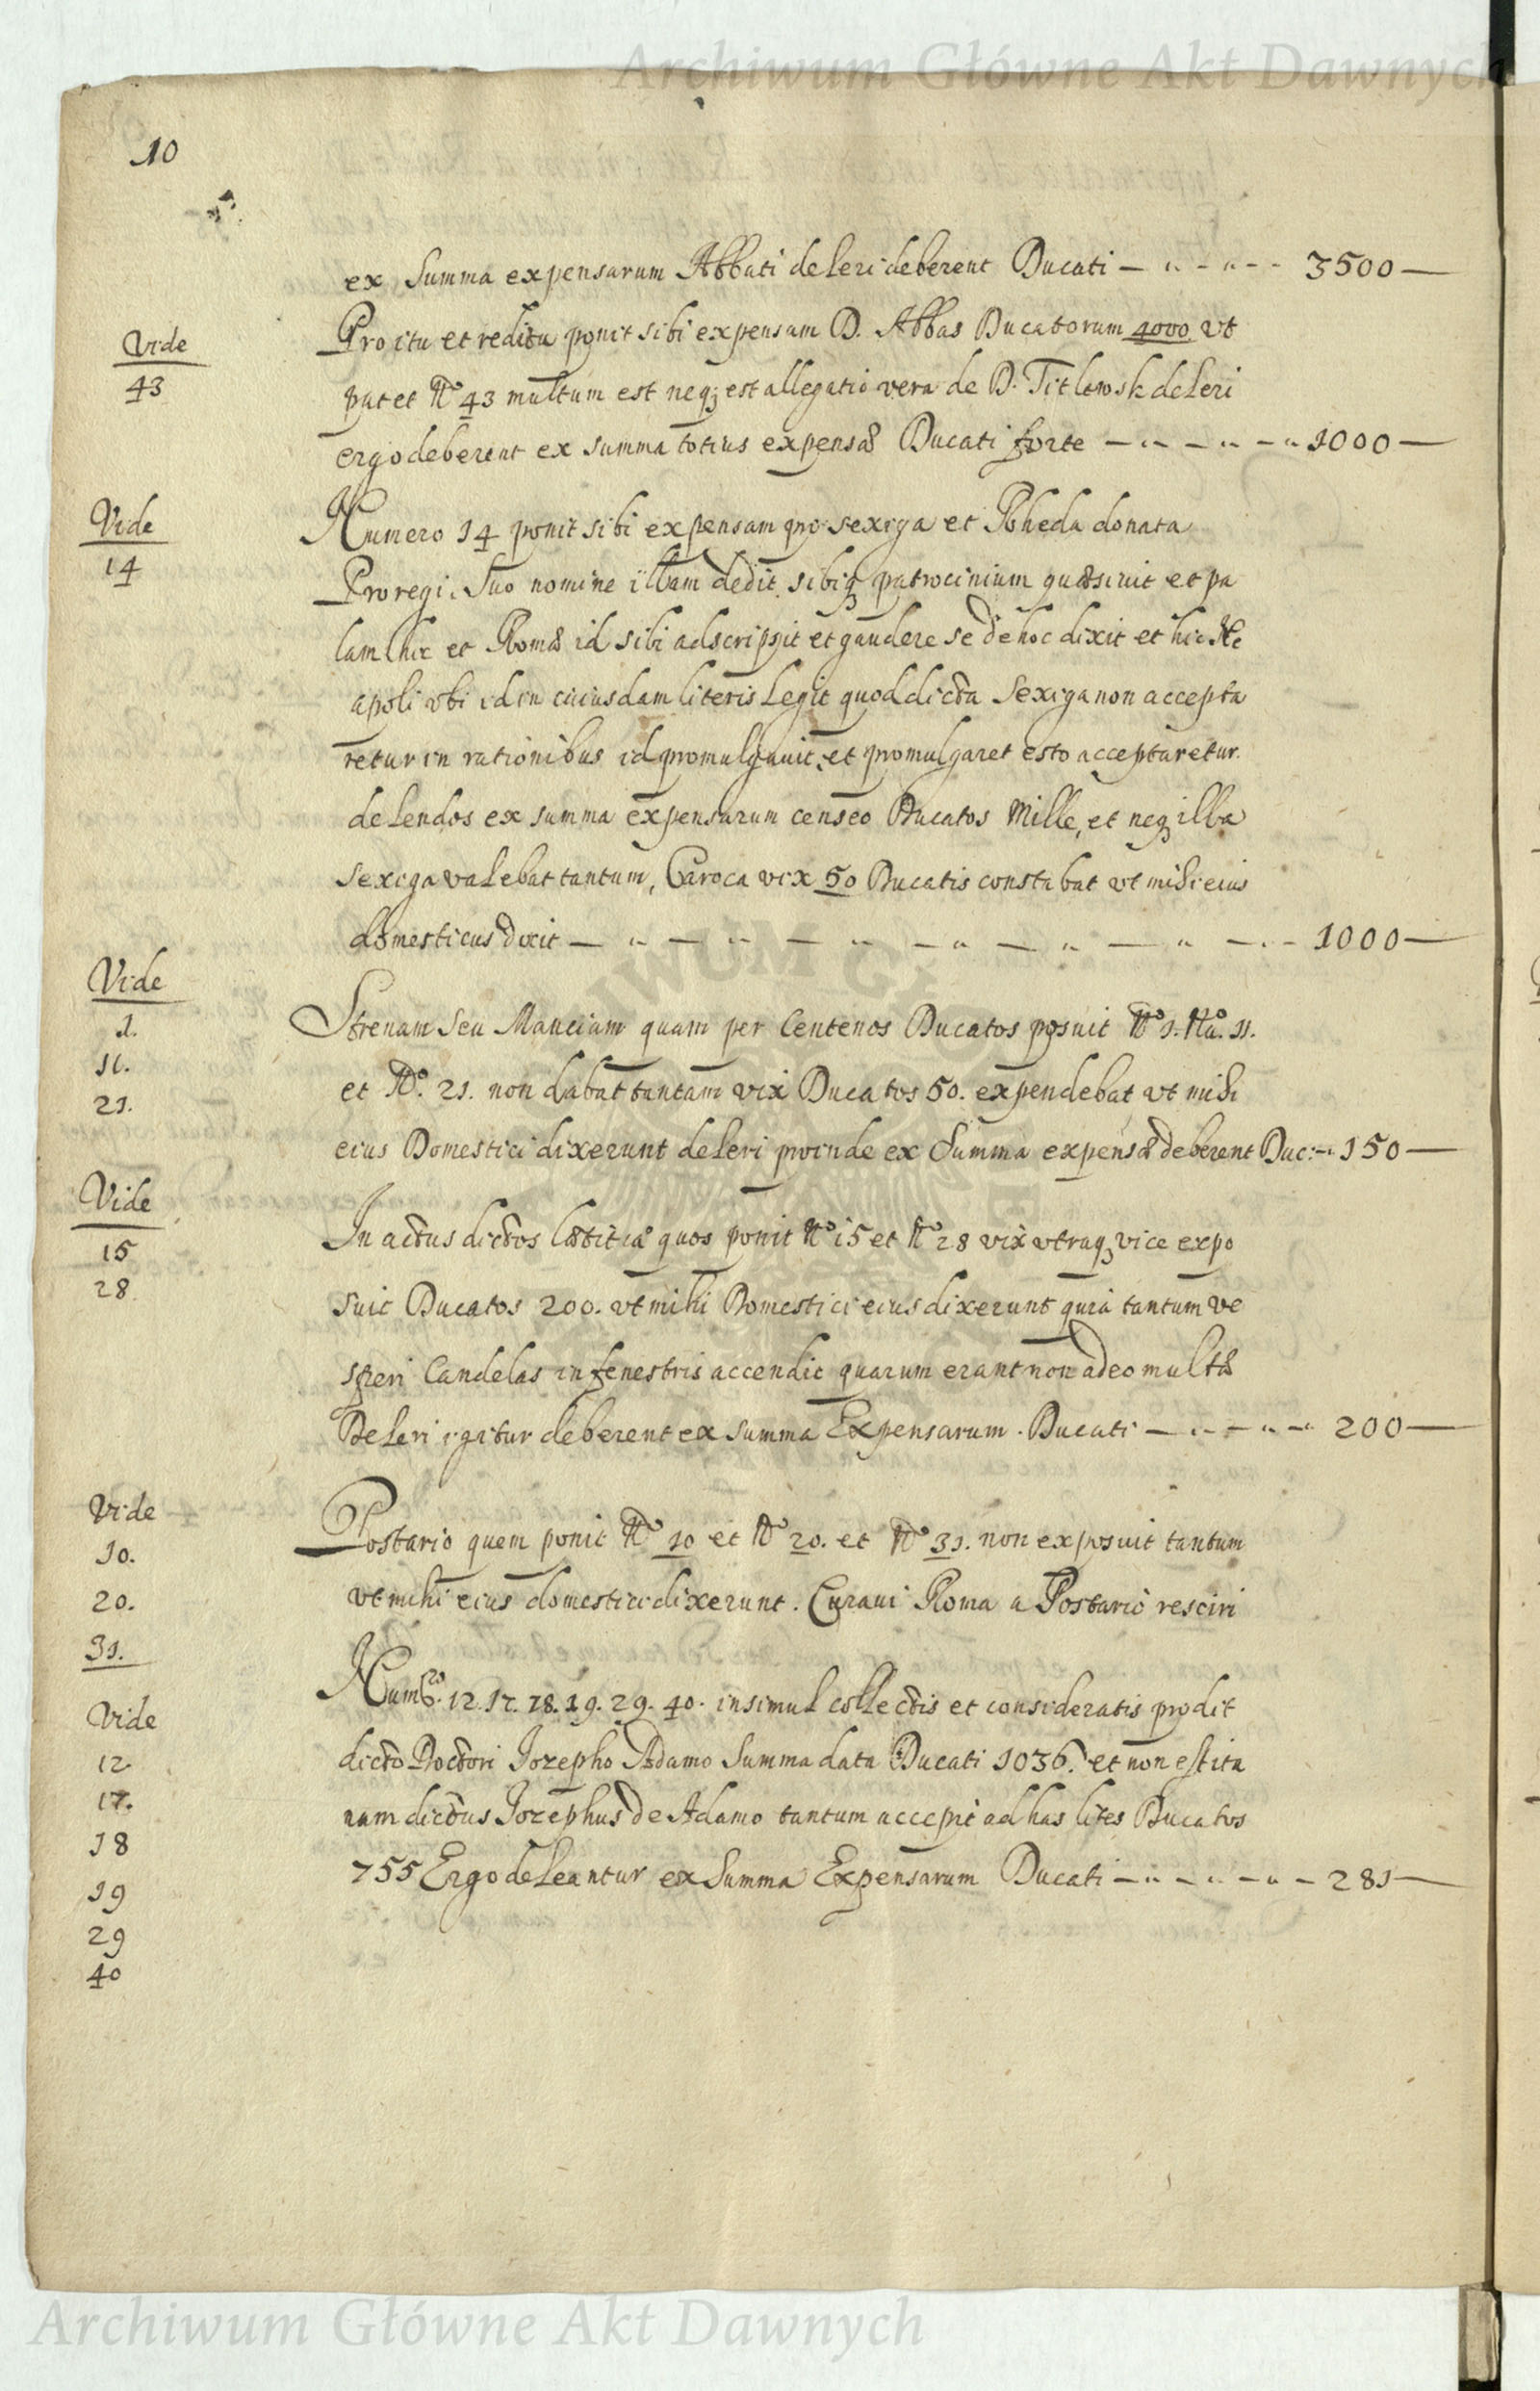 Archiwum Główne Akt Dawnych
10
ex Summa expensarum Abbati deleri deberent Ducati 3500
Vide
43
Pro itu et reditu ponit sibi expensam D. Abbas Ducatorum 4000 vt
patet No 43 multum est neq; est allegatio vera de D. Titlewsk deleri
ergo deberent ex summa totius expensæ Ducati forte 1000
Vide
14
Numero 14 ponit sibi expensam pro sexiga et Rheda donata
Proregi. Suo nomine illam dedit, sibiq; patrocinium quæsiuit et pa
lam hic et Romæ id sibi adscripsit et gaudere se de hoc dixit et hic Ne
apoli vbi id in cuiusdam literis legit quod dicta sexiga non accepta
retur in rationibus id promulgauit, et promulgaret esto acceptaretur.
delendos ex summa expensarum censeo Ducatos Mille, et neq; illa
sexiga valebat tantum, Caroca vix 50 Ducatis constabat vt mihi eius
domesticus dixit 1000
Vide
1.
11.
21.
Strenam seu Manciam quam per Centenos Ducatos posuit No 1. Nu. 11.
et No. 21. non dabat tantam vix Ducatos 50. expendebat vt mihi
eius Domestici dixerunt deleri proinde ex Summa expensæ deberent Duc: 150
Vide
15
28
In actus dictos lætitiæ quos ponit No 15 et No 28 vix vtraq; vice expo
suit Ducatos 200. vt mihi Domestici eius dixerunt quia tantum ve
speri Candelas in fenestris accendit quarum erant non adeo multæ
Deleri igitur deberent ex summa Expensarum. Ducati 200
Vide
10.
20.
31.
Postario quem ponit No 10 et No 20. et No 31. non exposuit tantum
vt mihi eius domestici dixerunt. Curaui Roma a Postario resciri
Vide
12
17.
18
19
29
40
Numeris. 12. 17. 18. 19. 29. 40. insimul collectis et consideratis prodit
dicto Doctori Jozepho Adamo Summa data Ducati 1036. et non est ita
nam dictus Jozephus de Adamo tantum accepit ad has lites Ducatos
755 Ergo deleantur ex Summa Expensarum Ducati 281
Archiwum Główne Akt Dawnych